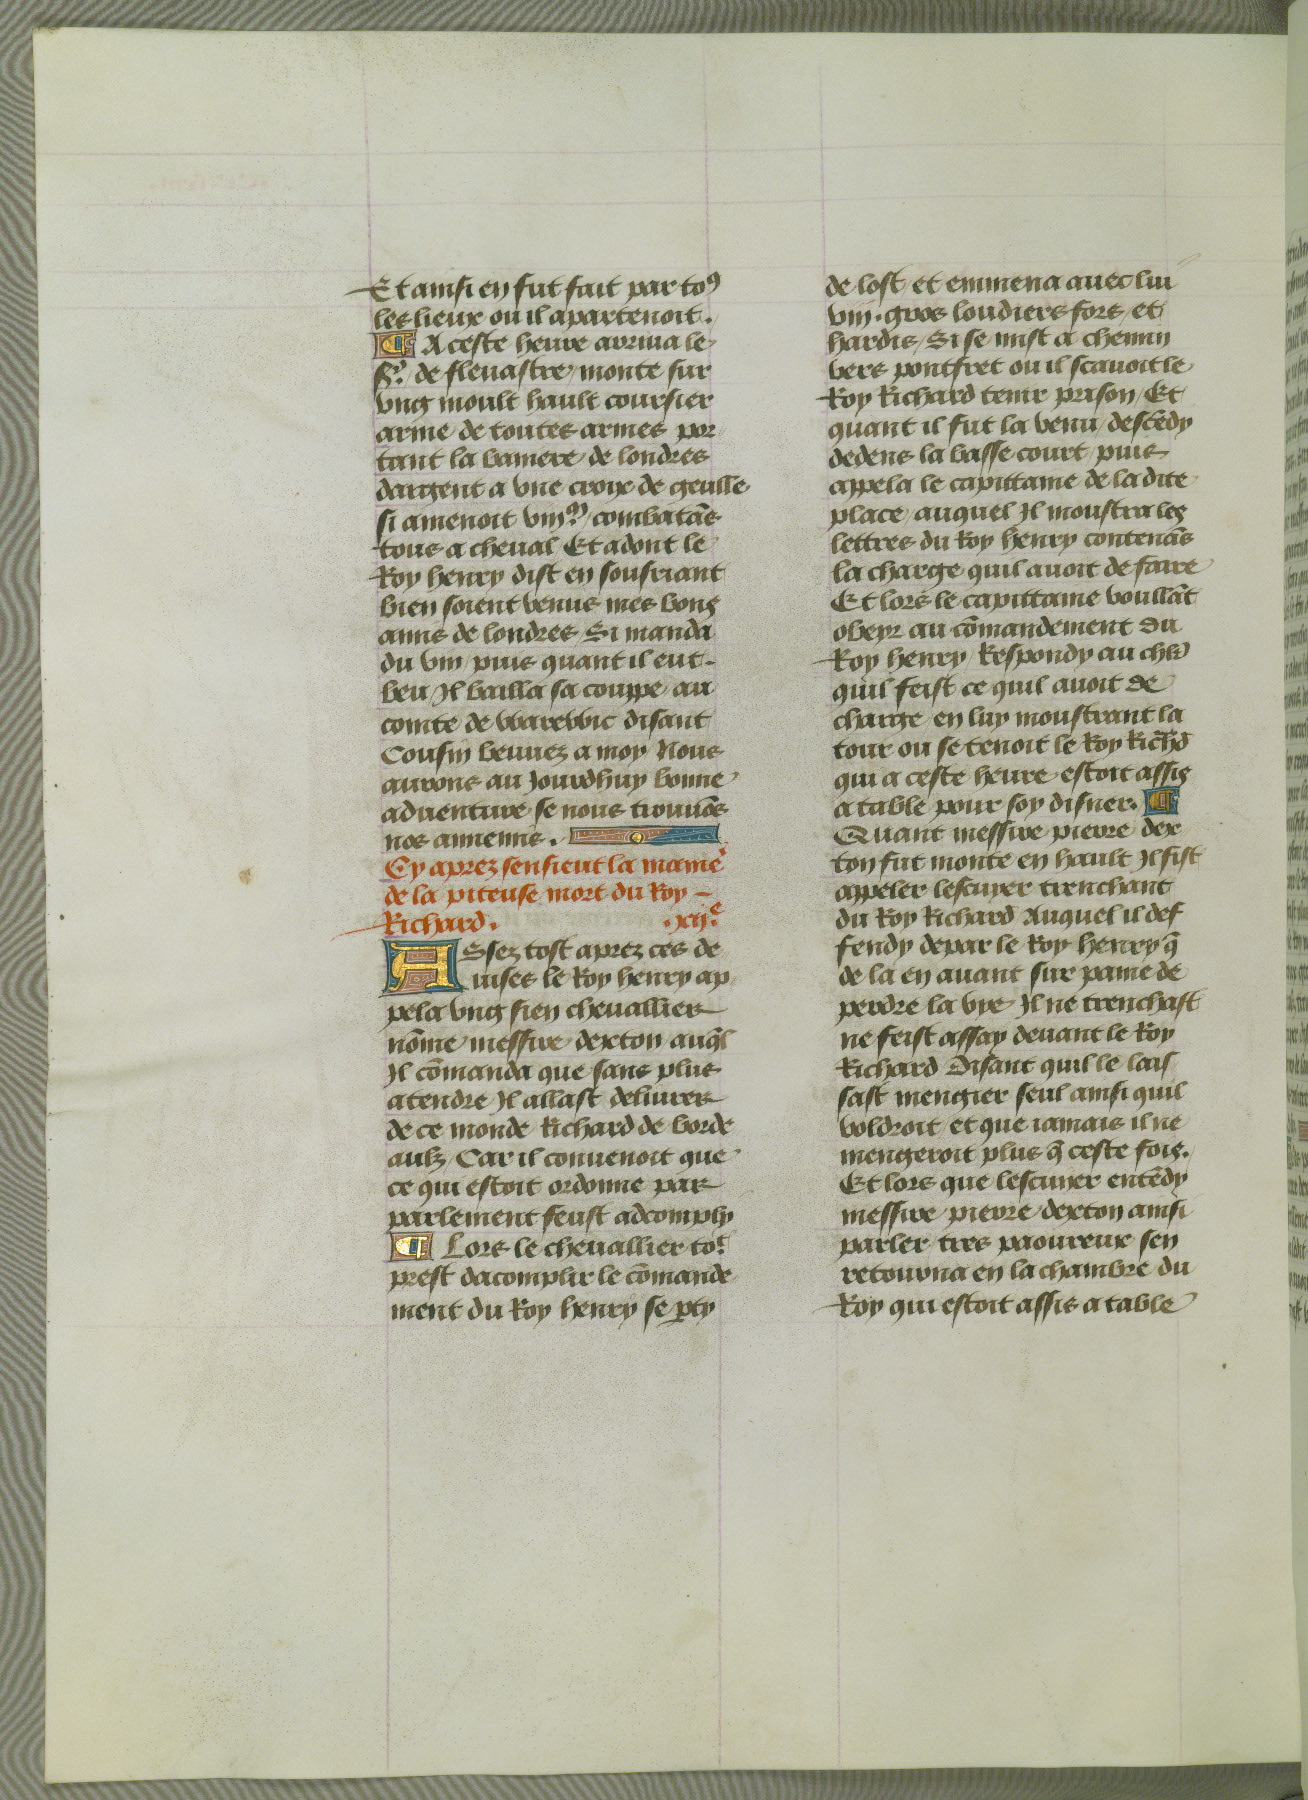 Et ainsi en fut fait par toꝰ
les lieux ou il apartenoit.
¶ A ceste heure arriua le
Sr. de fleuastre monte sur
vng moult hault coursier
arme de toutes armes por
tant la baniere de londres
dargent a vne croix de geulle
si amenoit viijᵐ combatās
tous a cheual Et adont le
Roy henry dist en sousriant
bien soient venus mes bons
amis de londres Si manda
du vin puis quant il eut
beu Jl bailla sa couppe au
comte de warewic disant
Cousin beuuez a moy Nous
aurons au Jourdhuy bonne
aduenture se nous trouuōs
nos annemis.
Cy aprez sensieut la manie
de la piteuse mort du Roy –
Richard. .xijᵉ.
ASsez tost aprez ces de
uises le Roy henry ap
pela vng sien chevallier
nōme messire dexton auql̄
Jl cōmanda que sans plus
atendre Jl allast deliurer
de ce monde Richard de borde
aulx Car il conuenoit que
ce qui estoit ordonne par
parlement feust adcomply
¶ Lors le cheuallier toᵗ
prest dacomplir le cōmande
ment du Roy henry se pty
de lost et emmena auec lui
viij. gros loudiers fors et
hardis Si se mist a chemin
vers pontfret ou il scauoit le
Roy Richard tenir prison Et
quant il fut la venu descēdy
dedens la basse court puis
appela le capittaine de la dite
place auquel Jl moustra les
lettres du Roy henry contenās
la charge quil auoit de faire
Et lors le capittaine voullāt
obeyr au cōmandement du
Roy henry Respondy au chlr̄
quil feist ce quil auoit de
charge en luy moustrant la
tour ou se tenoit le Roy Richr̄d
qui a ceste heure estoit assis
a table pour soy disner. ¶
Quant messire pierre dex
ton fut monte en hault Jl fist
appeler lescuyer trenchant
du Roy Richard Auquel il def
fendy depar le Roy henry q̄
de la en auant sur paine de
perdre la vye Jl ne trenchast
ne feist assay deuant le Roy
Richard Disant quil le lais
sast mengier seul ainsi quil
voldroit et que iamais il ne
mengeroit plus q̄ ceste fois.
Et lors que lescuyer entēdy
messire pierre dexton ainsi
parler tres paoureux sen
retourna en la chambre du
Roy qui estoit assis a table